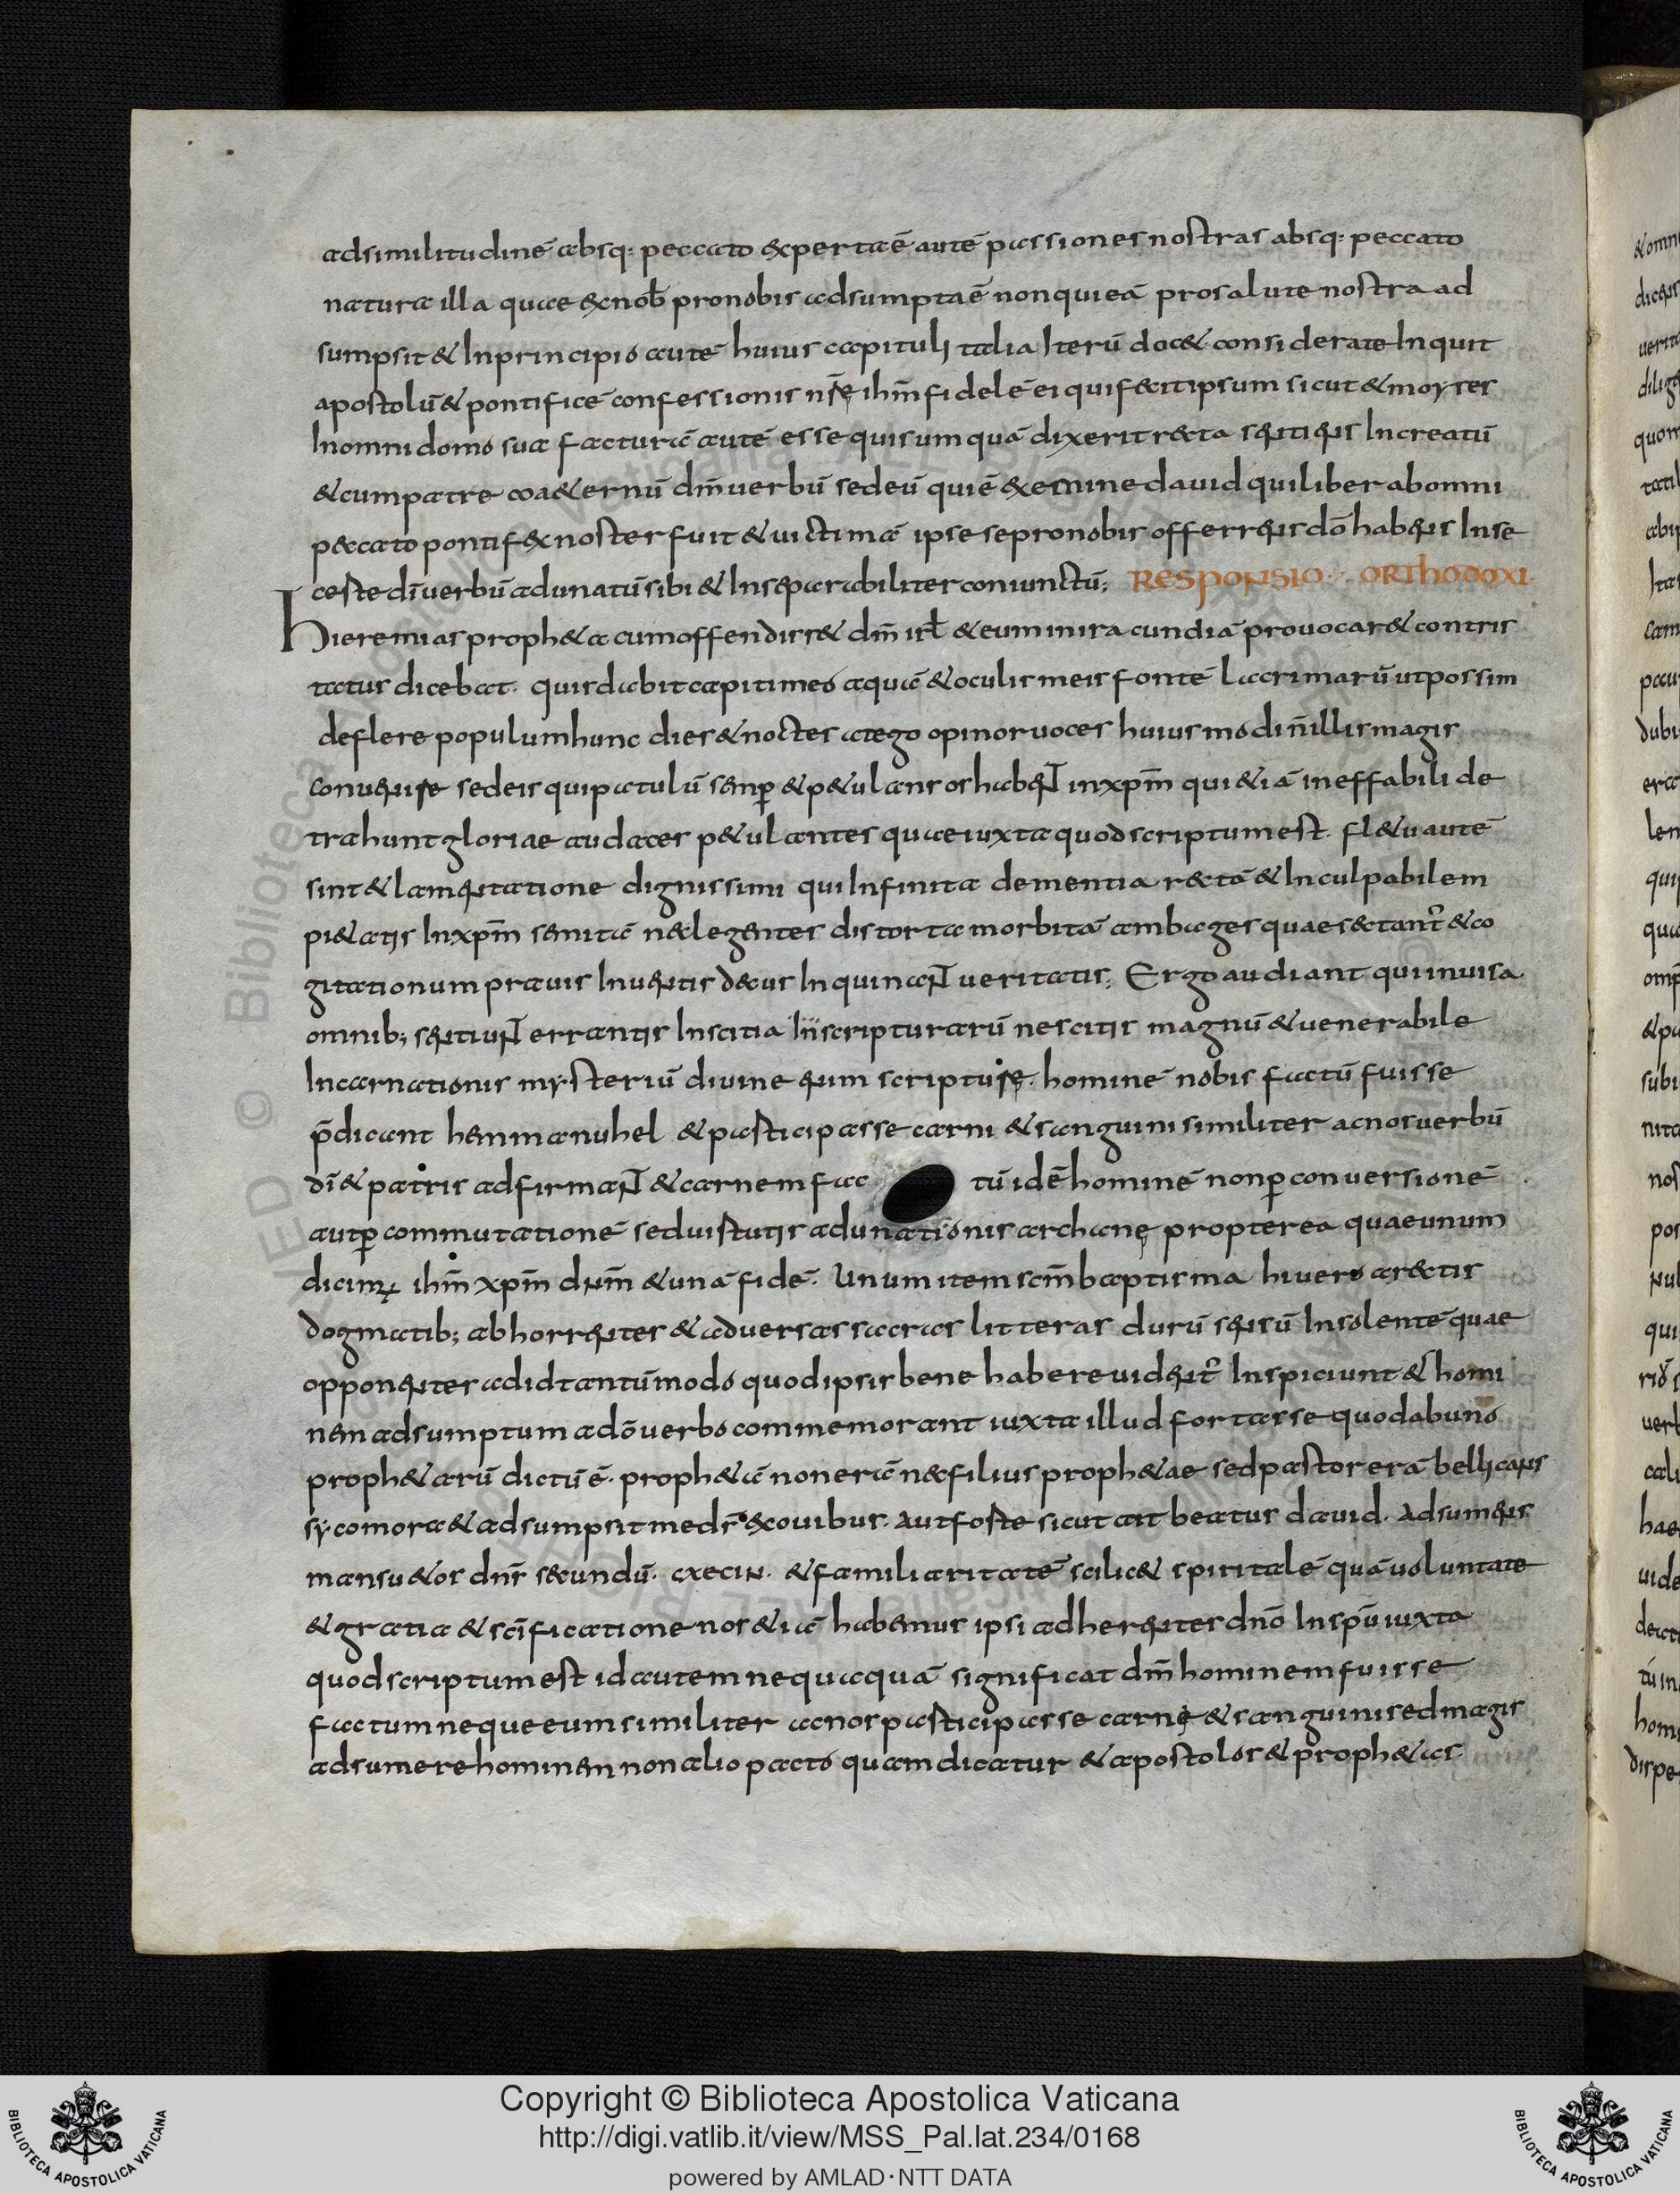 adsimilitudinē absq: peccato expertaē autē passiones nostras absq: peccato
natura illa quae exnob̄ pronobis adsumptaē nonquieā prosalute nostra ad
sumpsit & Inprincipio autē huius capituli talia Iterū doc& considerate Inquit
apostolū & pontificē confessionis nr̄ę ihm̄ fidelē ei quifecitipsum sicut & moyses
Inomni domo sua facturā autē esse quisumquā dixerit recta sentiens Increatū
& cumpatre coa&ernū dm̄ verbū sedeū quiē exemine david quiliber abomni
peccato pontifex noster fuit & uictimā ipse sepronobis offerrens dō habens Inse
ceste dī verbū adunatū sibi & Inseparabiliter coniunctū; RESPONSIO ORTHODOXI
Hieremias proph&a cumoffendiss& dm̄ isrl̄ & eum inira cundiā provocar& contris
tatus dicebat. quisdabit capitimeo aquā & oculis meis fontē lacrimarū utpossim
deflere populumhunc dies & noctes atego opinor uoces huiusmodi n̄ illis magis
convenisse sedeis quipatulū semp & p&ulans os habent inxpm̄ qui &iā ineffabili de
trahunt gloriae audaces p&ulantes quae iuxta quod scriptum est. fl&u autē
sint & lamentatione dignissimi qui Infinita dementia rectā & Inculpabilem
pi&atis Inxpm̄ semitā neclegentes distorta morbitā ambages quae sectant̄ & co
gitationum pravis Inventis decus Inquinant veritatis; Ergo audiant qui invisa
omnib; sentiunt errantis Inscitia Inscripturarū nescitis magnū & venerabile
Incarnationis mysteriū divine enim scripturę. hominē nobis factū fuisse
p̄dicant hemmanuhel & pasticipasse carni & sanguini similiter acnos verbū
dī & patris adfirmant & carnem fac tū idē hominē nonp conversionē
autp commutationē sedvistutis adunationis archanę propterea quae unum
dicimus ihm̄ xpm̄ dnm̄ & unā fidē. Unum item scm̄ baptisma hi vero arectis
dogmatib; abhorrentes & adversas sacras litteras durū sensū Insolentē quae
opponentes adid tantūmodo quod ipsis bene habere uident̄ Inspiciunt & homi
nem adsumptum adō verbo commemorant iuxta illud fortasse quod abuno
proph&arū dictū ē. proph&ā non erā nec filius proph&ae sed pastor erā bellicans
sycomora & adsumpsit me dn̄s ex ovibus. Aut foste sicut ait beatus david. Adsumens
mansu&os dn̄s secundū. CXECIN. & familiaritatē scilic& spiritalē quā uoluntate
& gratia & scīficatione nos &iā habemus ipsi adherentes dnō Inspū iuxta
quod scriptum est id autem nequaquā significat dm̄ hominem fuisse
factum neque eum similiter acnos pasticipasse carnę & sanguini sed magis
adsumere hominem non alio pacto quam dicatur & apostolos & proph&as.
Copyright © Biblioteca Apostolica Vaticana
http://digi.vatlib.it/view/MSS_Pal.lat.234/0168
powered by AMLAD·NTT DATA
BIBLIOTECA APOSTOLICA VATICANA
BIBLIOTECA APOSTOLICA VATICANA